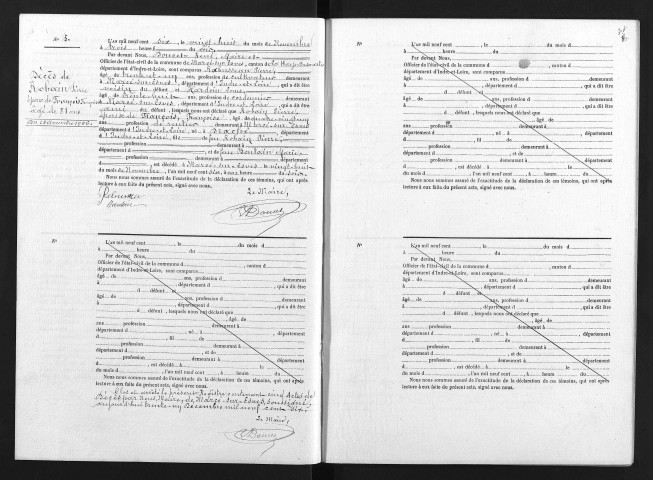 N° 5.
Décès de
Robain Pierre
époux de François Françoise
âgé de 81 ans
L'an mil neuf cent six, le vingt huit du mois de Novembre
à trois heures du soir
Par devant Nous, Maire et
Officier de l'état-civil de la commune de Marcé sur Esves, canton de La Haye-Descartes
département d'Indre-et-Loire, sont comparus Pierre,
âgé de trente et un ans, profession de cultivateur, demeurant
à Marcé sur Esves, département d'Indre et Loire, qui a dit être
voisin du défunt et Louis,
âgé de trente huit ans, profession de cordonnier, demeurant
à Marcé sur Esves, département d'Indre et Loire, qui a dit être
ami du défunt, lesquels nous ont déclaré que Robain Pierre,
époux de François, Françoise, âgé de quatre vingt un
ans, profession de rentier, demeurant à Marcé sur Esves
département d'Indre et Loire, né à Draché, département
d'Indre et Loire, fils de feu Robain Pierre,
profession demeurant à
département d, et de feu Marie
profession demeurant à
département d, est décédé à Marcé sur Esves le vingt huit
du mois de Novembre, l'an mil neuf cent six, heures du soir.
Nous nous sommes assuré de l'exactitude de la déclaration de ces témoins, qui ont après
lecture à eux faite du présent acte, signé avec nous.
Le Maire,
N°
L'an mil neuf cent, le du mois d
à heure du
Par devant Nous,
Officier de l'état-civil de la commune d, canton d
département d'Indre-et-Loire, sont comparus
âgé de ans, profession d demeurant
à, département d qui a dit être
d défunt et
âgé de ans, profession d demeurant
à, département d qui a dit être
d défunt, lesquels nous ont déclaré que
, âgé de
ans, profession demeurant à
département d, né à, département
d, fil de
profession demeurant à
département d, et de
profession demeurant à
département d, est décédé à le
du mois d, l'an mil neuf cent, à heure du
Nous nous sommes assuré de l'exactitude de la déclaration de ces témoins, qui ont après
lecture à eux faite du présent acte, signé avec nous.
Clos et arrêté le présent Registre contenant cinq actes de
Décès par Nous, Maire, de Marcé-sur-Esves, soussigné
aujourd'hui trente-un Décembre mil neuf cent six.
Le Maire,
N°
L'an mil neuf cent, le du mois d
à heure du
Par devant Nous,
Officier de l'état-civil de la commune d, canton d
département d'Indre-et-Loire, sont comparus
âgé de ans, profession d demeurant
à, département d qui a dit être
d défunt et
âgé de ans, profession d demeurant
à, département d qui a dit être
d défunt, lesquels nous ont déclaré que
, âgé de
ans, profession demeurant à
département d, né à, département
d, fil de
profession demeurant à
département d, et de
profession demeurant à
département d, est décédé à le
du mois d, l'an mil neuf cent, à heure du
Nous nous sommes assuré de l'exactitude de la déclaration de ces témoins, qui ont après
lecture à eux faite du présent acte, signé avec nous.
N°
L'an mil neuf cent, le du mois d
à heure du
Par devant Nous,
Officier de l'état-civil de la commune d, canton d
département d'Indre-et-Loire, sont comparus
âgé de ans, profession d demeurant
à, département d qui a dit être
d défunt et
âgé de ans, profession d demeurant
à, département d qui a dit être
d défunt, lesquels nous ont déclaré que
, âgé de
ans, profession demeurant à
département d, né à, département
d, fil de
profession demeurant à
département d, et de
profession demeurant à
département d, est décédé à le
du mois d, l'an mil neuf cent, à heure du
Nous nous sommes assuré de l'exactitude de la déclaration de ces témoins, qui ont après
lecture à eux faite du présent acte, signé avec nous.